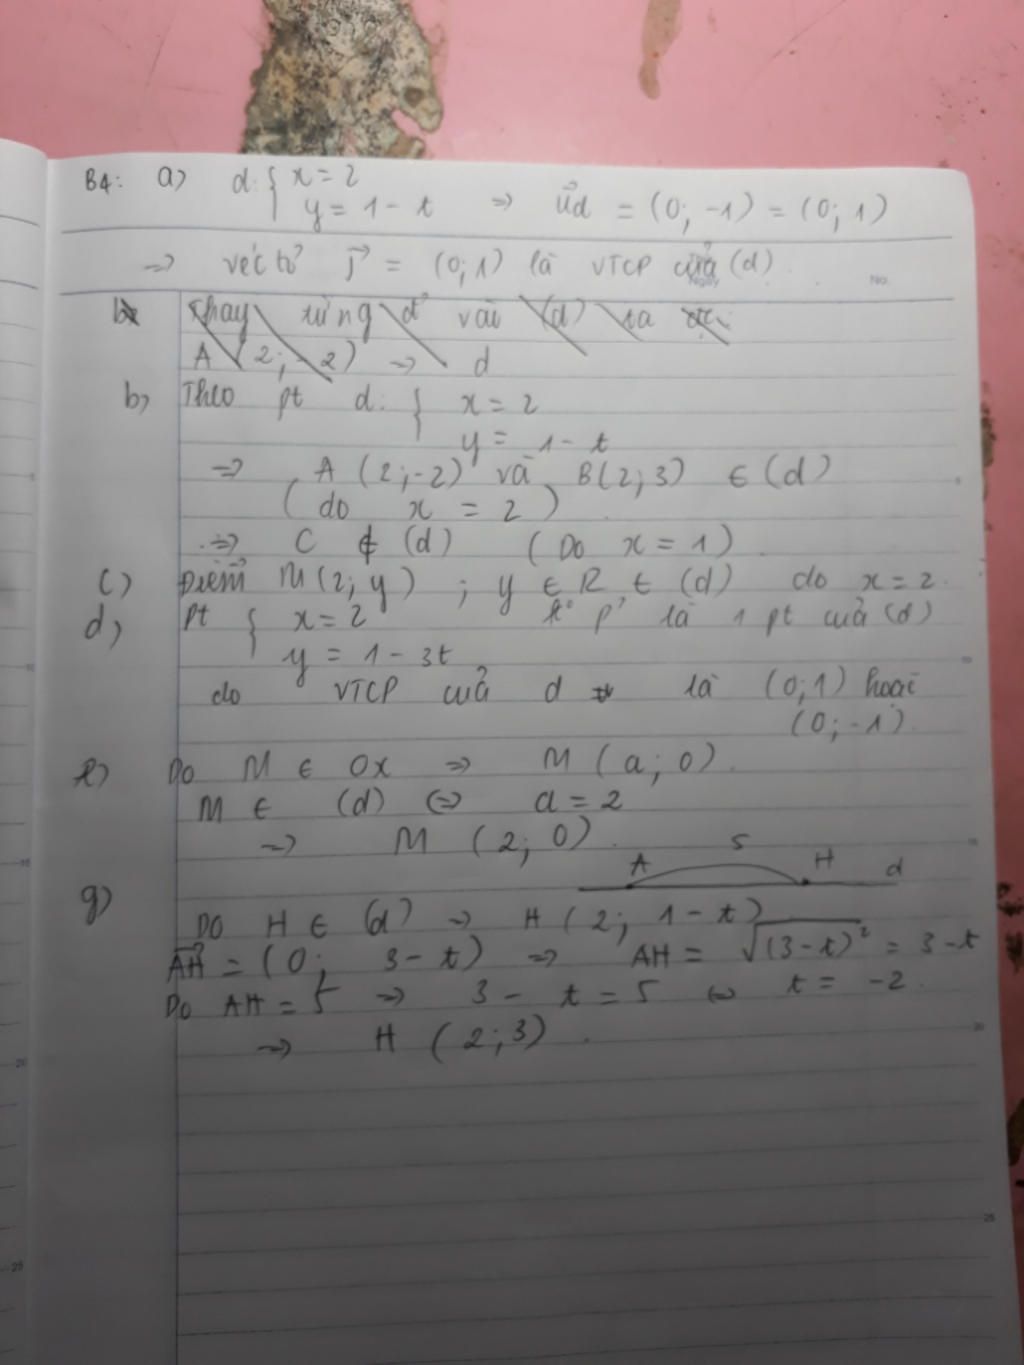 B4: a) d: { x = 2
y = 1 - t => u⃗d = (0; -1) = (0; 1)
=> véc tơ j⃗ = (0; 1) là VTCP của (d).
Ngày No.
b) Thay từng đ' vào (d) ta đc:
A (2; -2) => d
b) Theo pt d: { x = 2
y = 1 - t
=> A (2; -2) và B(2; 3) ∈ (d)
(do x = 2)
=> C ∉ (d) (Do x = 1)
c) Điểm M(2; y) ; y ∈ R ∈ (d) do x = 2.
d) pt { x = 2 là 1 pt của (d)
y = 1 - 3t
do VTCP của d là (0; 1) hoặc
(0; -1).
e) Do M ∈ Ox => M (a; 0).
M ∈ (d) <=> a = 2
=> M (2; 0).
A 5 H d
g) Do H ∈ (d) => H (2; 1 - t)
AH⃗ = (0; 3 - t) => AH = √(3 - t)² = 3 - t
Do AH = 5 => 3 - t = 5 <=> t = -2.
=> H (2; 3).